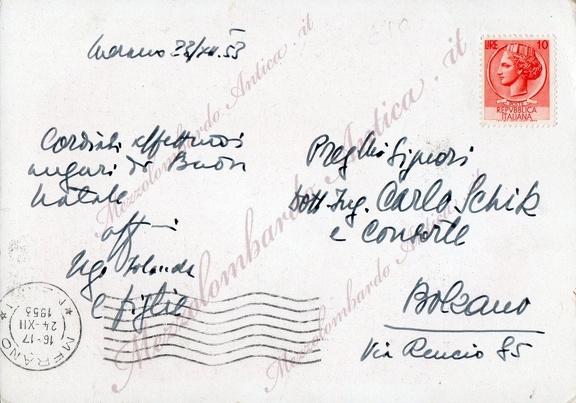 Merano 23/XII.53
Cordiali affettuosi
auguri di Buon
Natale
aff.mi
Ugo Iolanda
e figlie
LIRE 10
POSTE
REPVBBLICA
ITALIANA
Preg.mi Signori
Dott. Ing. Carlo Schik
e Consorte
Bolzano
Via Rencio 85
MERANO
16-17
24-XII
1953
Mezzolombardo Antica.it
Mezzolombardo Antica.it
Mezzolombardo Antica